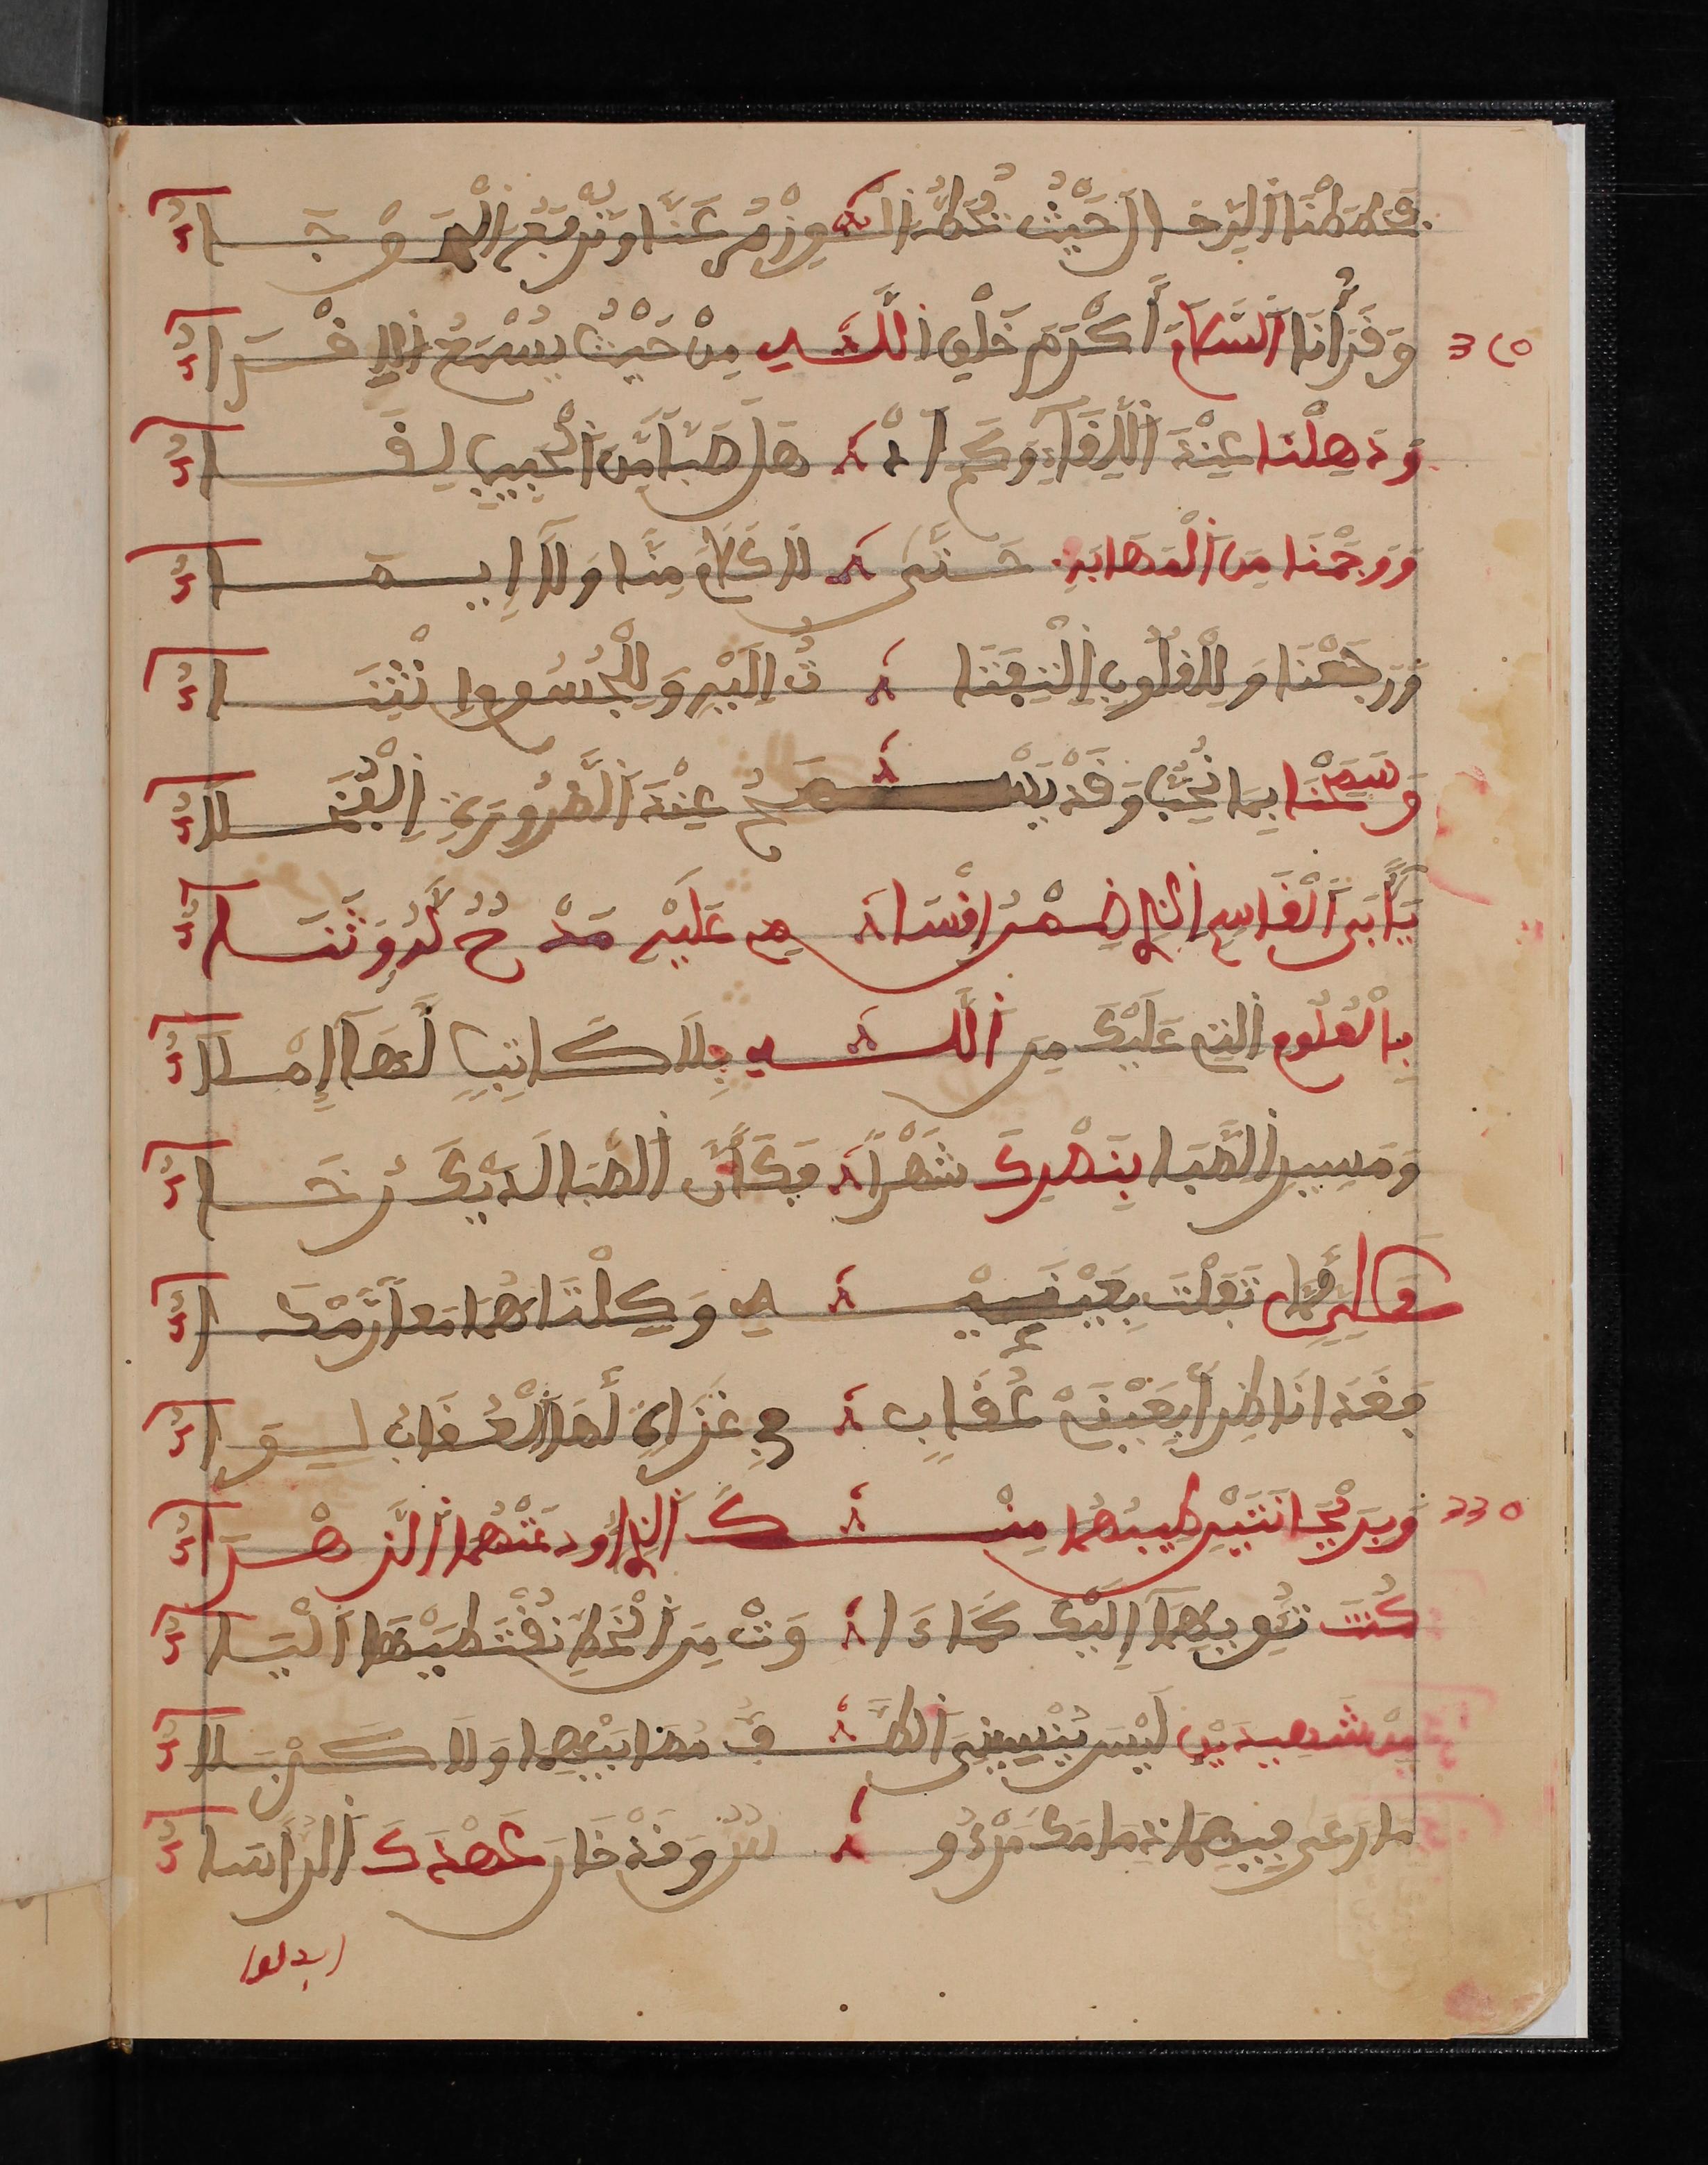 فَحَطَطْنَا الرِّحَالَ حَيْثُ يُحَطُّ الْوِزْرُ عَنَّا وَتُرْفَعُ الْحَوْجَاءُ
وَقَرَأْنَا السَّلَامَ أَكْرَمَ خَلْقِ اللَّهِ مِنْ حَيْثُ يُسْمَعُ الْإِقْرَاءُ 310
وَذَهِلْنَا عِنْدَ اللِّقَاءِ وَكَمْ أَذْهَلَ صَبًّا مِنَ الْحَبِيبِ لِقَاءُ
وَوَجَمْنَا مِنَ الْمَهَابَةِ حَتَّى لَا كَلَامٌ مِنَّا وَلَا إِيمَاءُ
وَرَجَعْنَا وَلِلْقُلُوبِ الْتِفَاتَاتٌ إِلَيْهِ وَلِلْجُسُومِ انْثِنَاءُ
وَسَمَحْنَا بِمَا نُحِبُّ وَقَدْ يَسْمَحُ عِنْدَ الضَّرُورَةِ الْبُخَلَاءُ
يَا أَبَا الْقَاسِمِ الَّذِي ضِمْنَ إِقْسَامِي عَلَيْهِ مَدْحٌ لَهُ وَثَنَاءُ
بِالْعُلُومِ الَّتِي عَلَيْكَ مِنَ اللَّهِ بِلَا كَاتِبٍ لَهَا إِمْلَاءُ
وَمَسِيرِ الصَّبَا بِنَصْرِكَ شَهْرًا فَكَأَنَّ الصَّبَا لَدَيْكَ رُخَاءُ
وَعَلِيٍّ لَمَّا تَفَلْتَ بِعَيْنَيْهِ وَكِلْتَاهُمَا مَعًا رَمْدَاءُ
فَغَدَا نَاظِرًا بِعَيْنَيْ عُقَابٍ فِي غَزَاةٍ لَهَا الْعُقَابُ لِوَاءُ
وَبِرَيْحَانَتَيْنِ طِيبُهُمَا مِنْكَ الَّذِي أَوْدَعَتْهُمَا الزَّهْرَاءُ 330
كُنْتَ تُؤْوِيهِمَا إِلَيْكَ كَمَا آوَتْ مِنَ الْخَطِّ نُقْطَتَيْهَا الْيَاءُ
مِنْ شَهِيدَيْنِ لَيْسَ يُنْسِينِي الطَّفُّ مُصَابَيْهِمَا وَلَا كَرْبَلَاءُ
مَا رَعَى فِيهِمَا ذِمَامَكَ مَرْءُوسٌ وَقَدْ خَانَ عَهْدَكَ الرُّؤَسَاءُ
ابدلوا